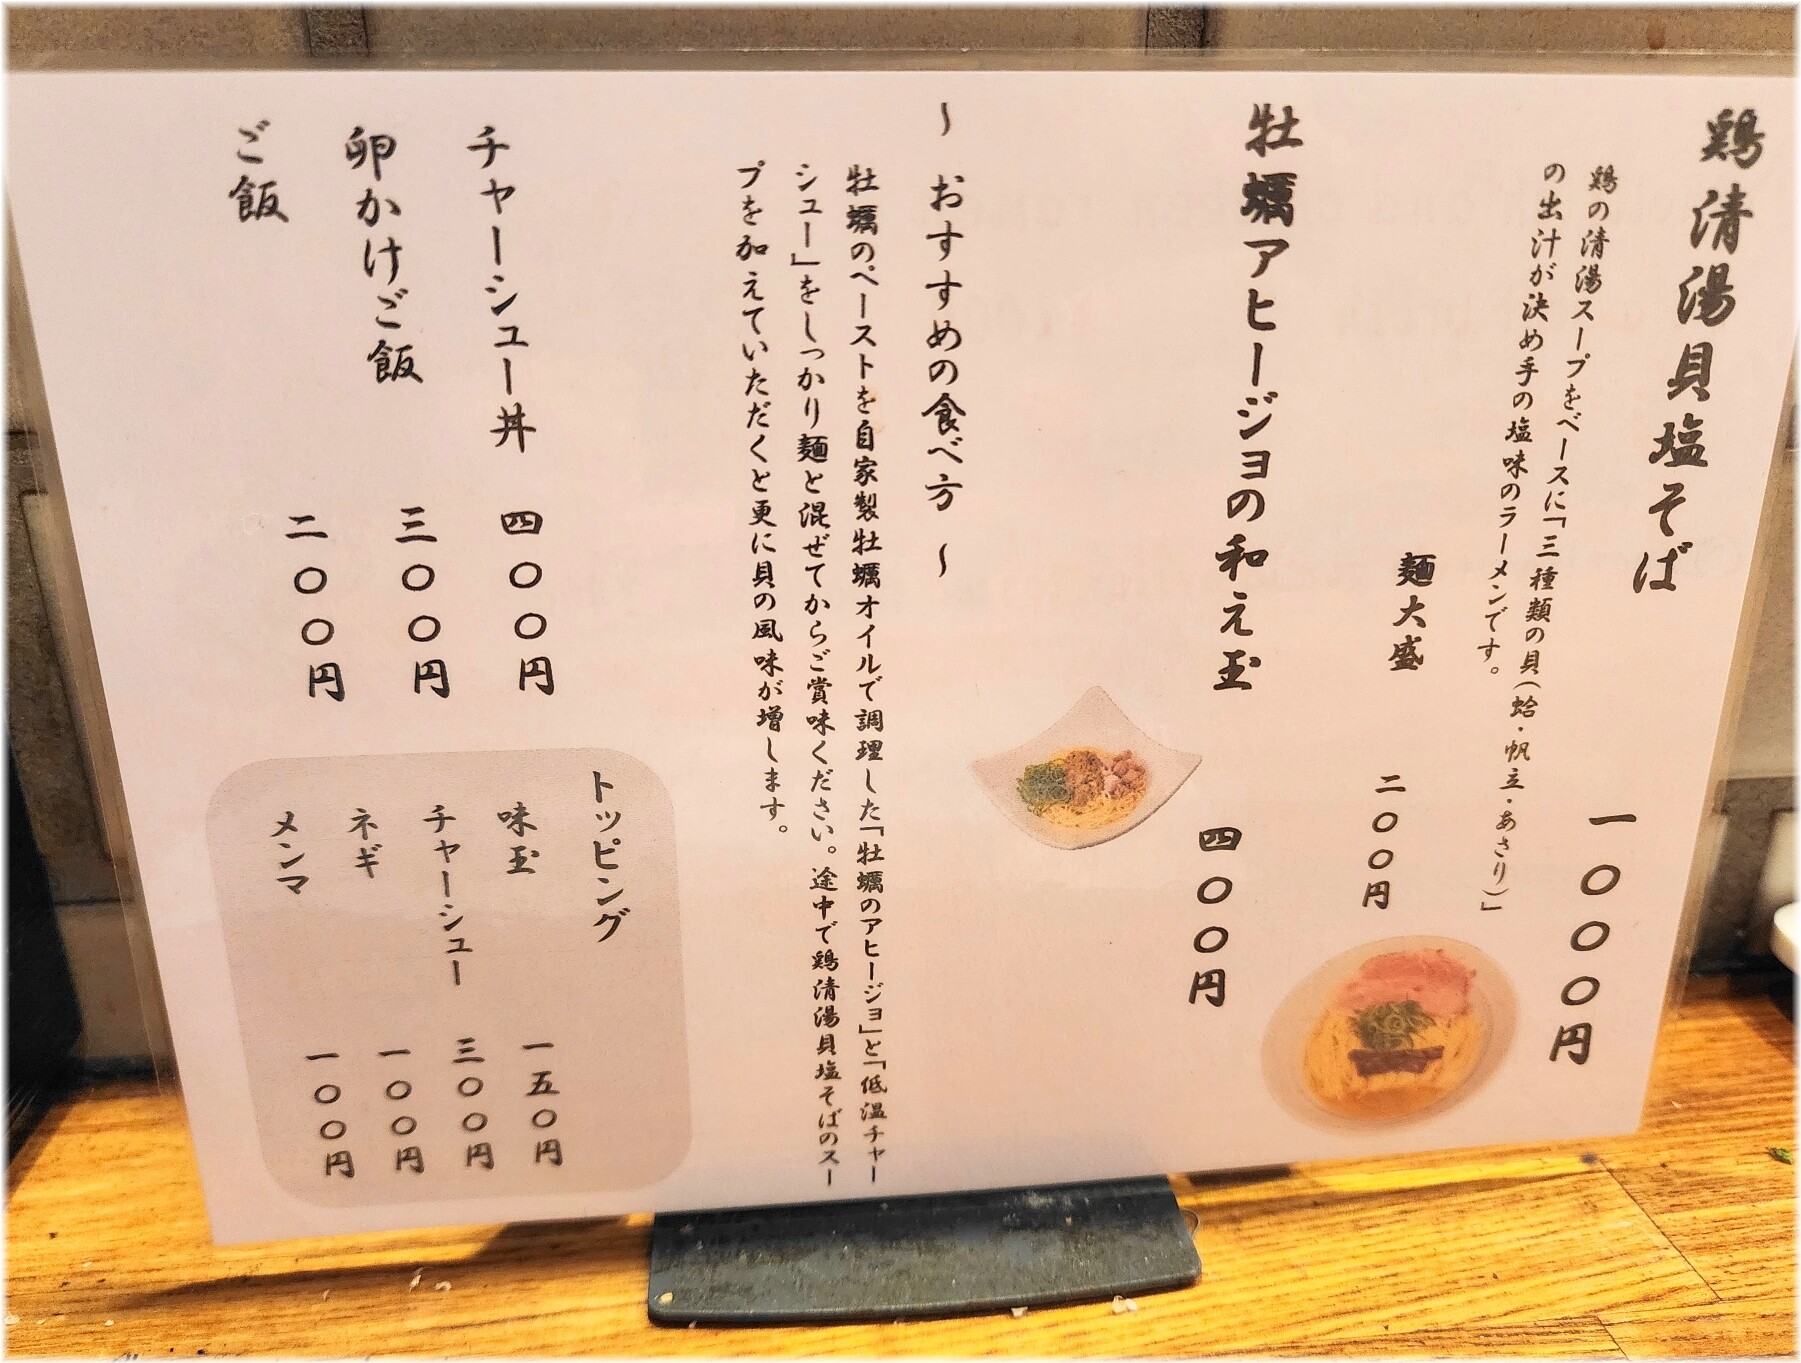 鶏清湯貝塩そば 一〇〇〇円
鶏の清湯スープをベースに「三種類の貝(蛤・帆立・あさり)」
の出汁が決め手の塩味のラーメンです。
麺大盛 二〇〇円
牡蠣アヒージョの和え玉 四〇〇円
～おすすめの食べ方～
牡蠣のペーストを自家製牡蠣オイルで調理した「牡蠣のアヒージョ」と「低温チャー
シュー」をしっかり麺と混ぜてからご賞味ください。途中で鶏清湯貝塩そばのスー
プを加えていただくと更に貝の風味が増します。
チャーシュー丼 四〇〇円
卵かけご飯 三〇〇円
ご飯 二〇〇円
トッピング
味玉 一五〇円
チャーシュー 三〇〇円
ネギ 一〇〇円
メンマ 一〇〇円